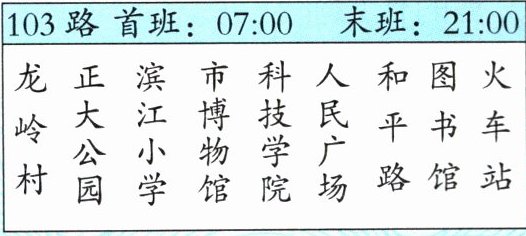 103 路 首班：07:00 末班：21:00
龙岭村
正大公园
滨江小学
市博物馆
科技学院
人民广场
和平路
图书馆
火车站